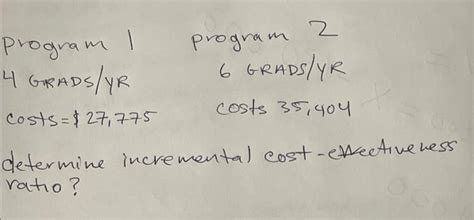 program 1 program 2
4 GRADS/YR 6 GRADS/YR
costs = $27,775 costs 35,404
determine incremental cost-effectiveness
ratio?